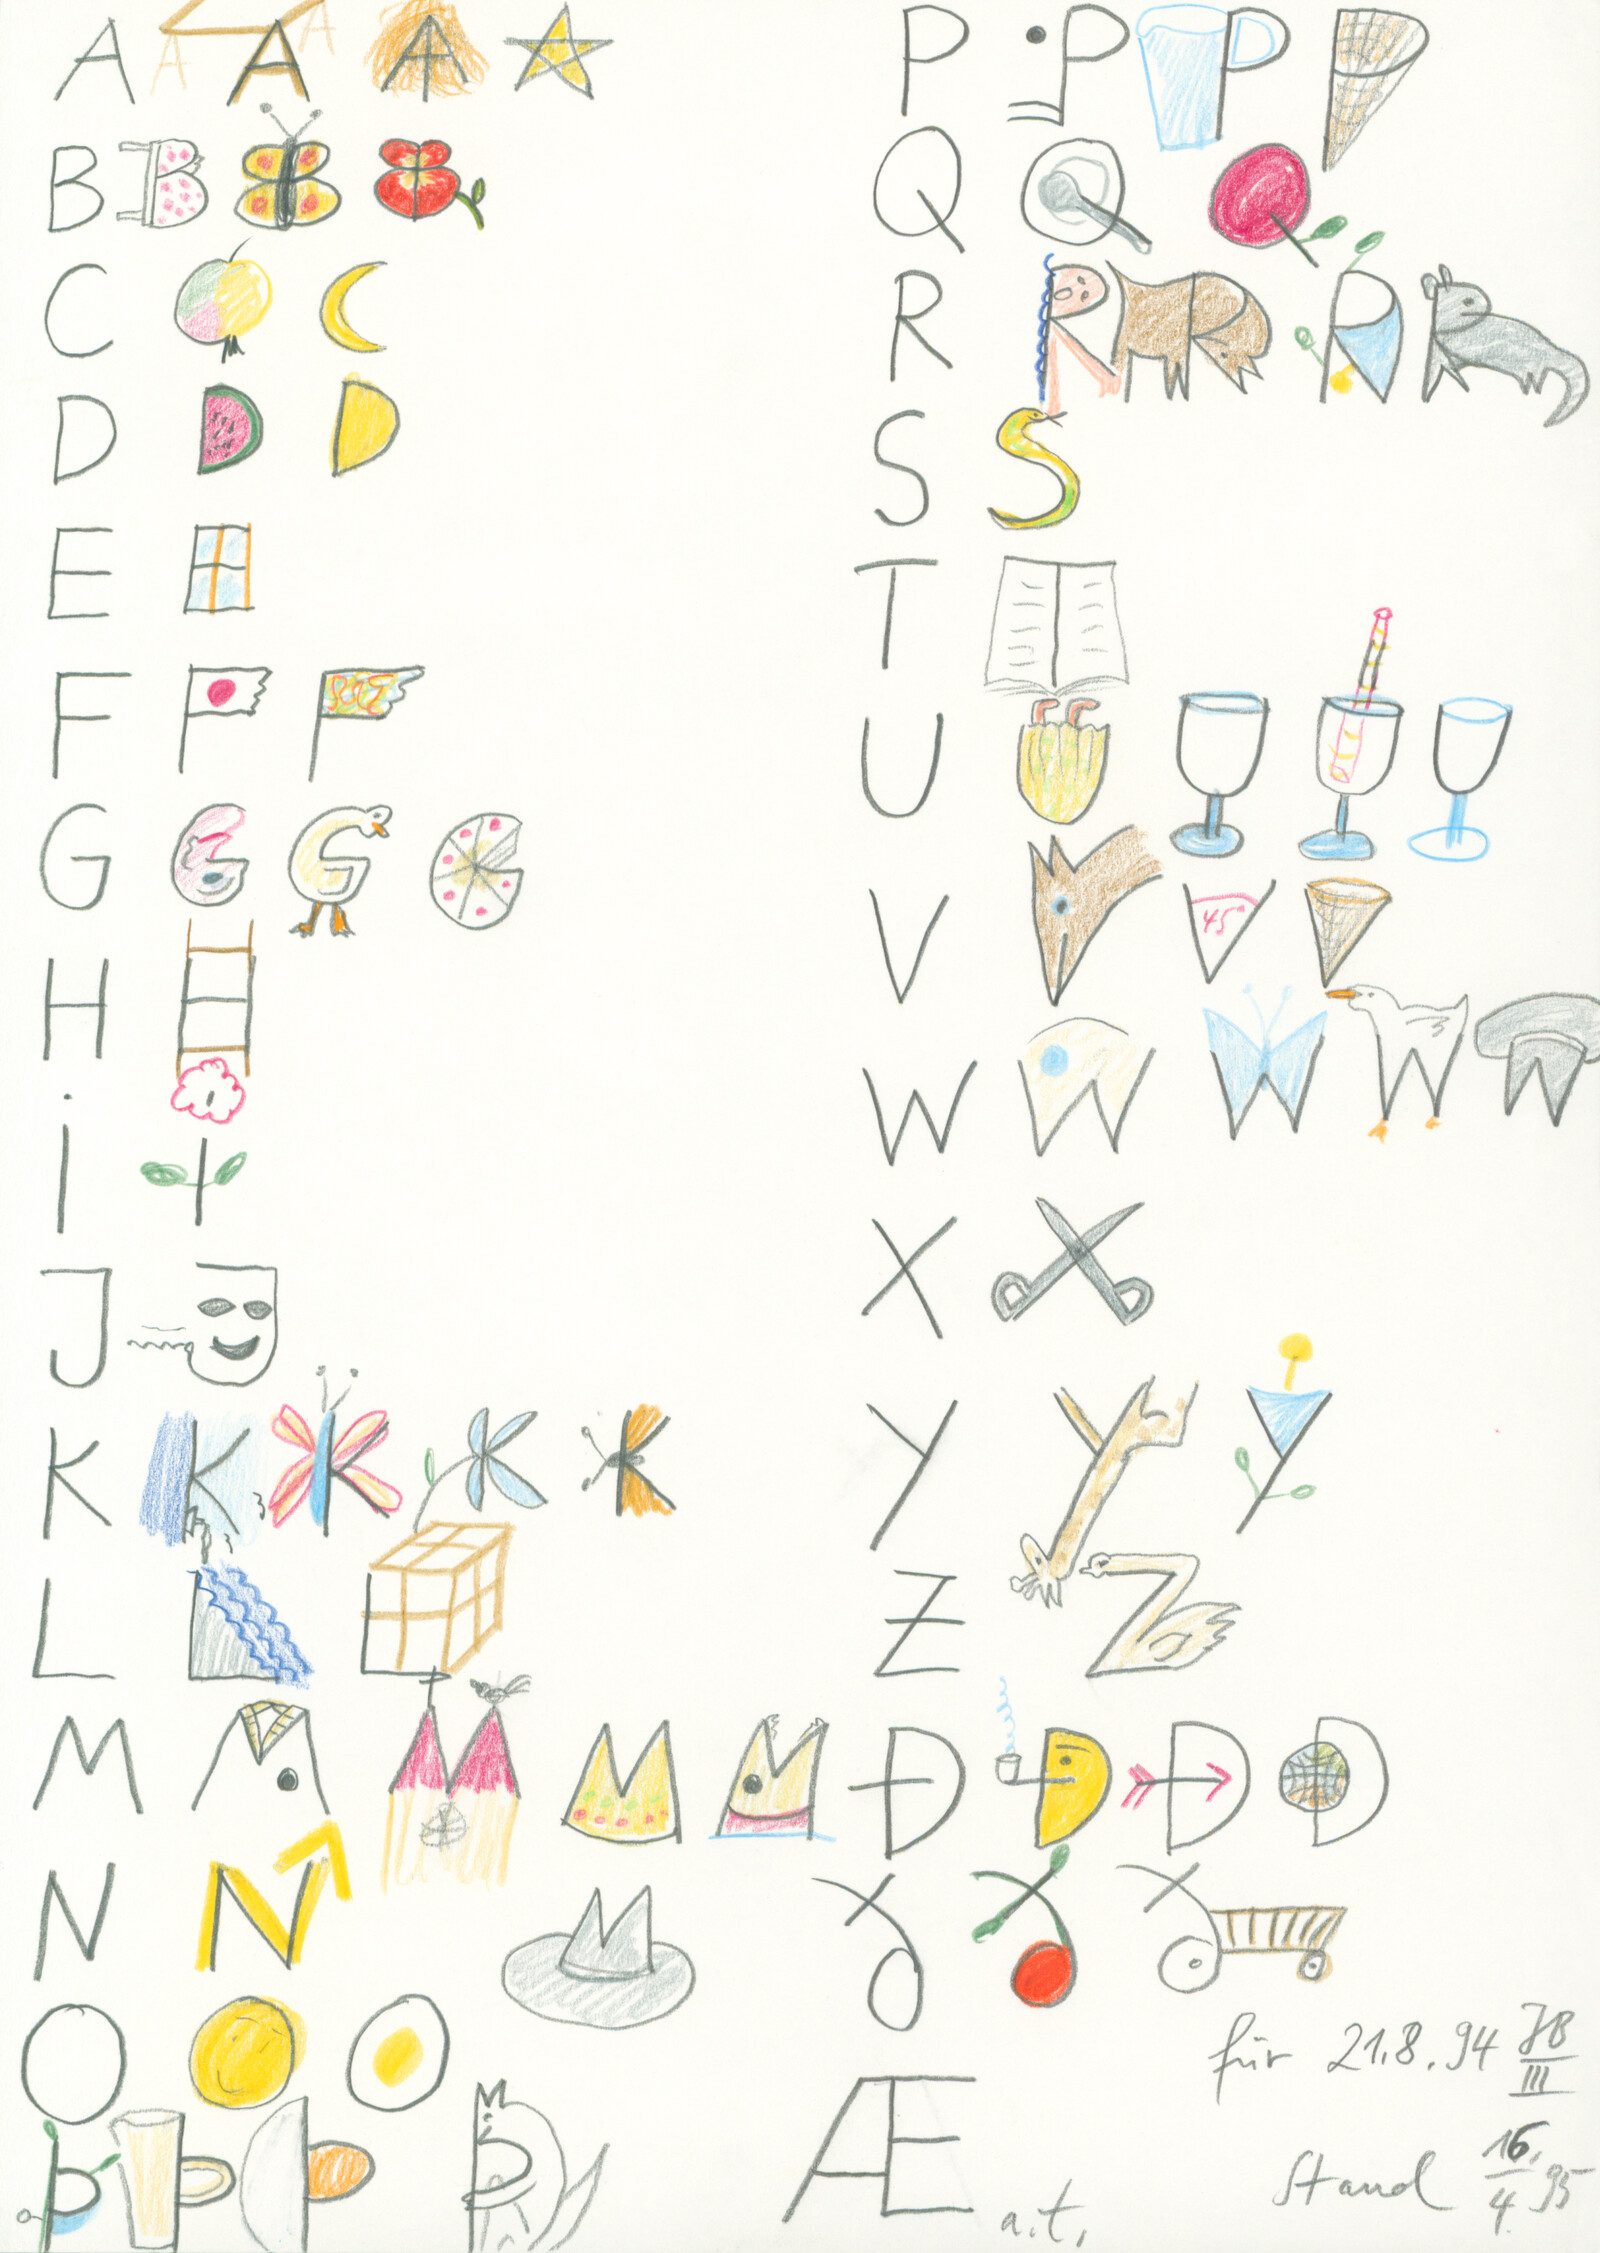 A
B
C
D
E
F
G
H
i
J
K
L
M
N
O
Þ
P
Q
R
S
T
U
V 45°
W
X
Y
Z
Ð
Æ
a.t.
für 21.8.94 JB
III
Stand 16.
4. 95